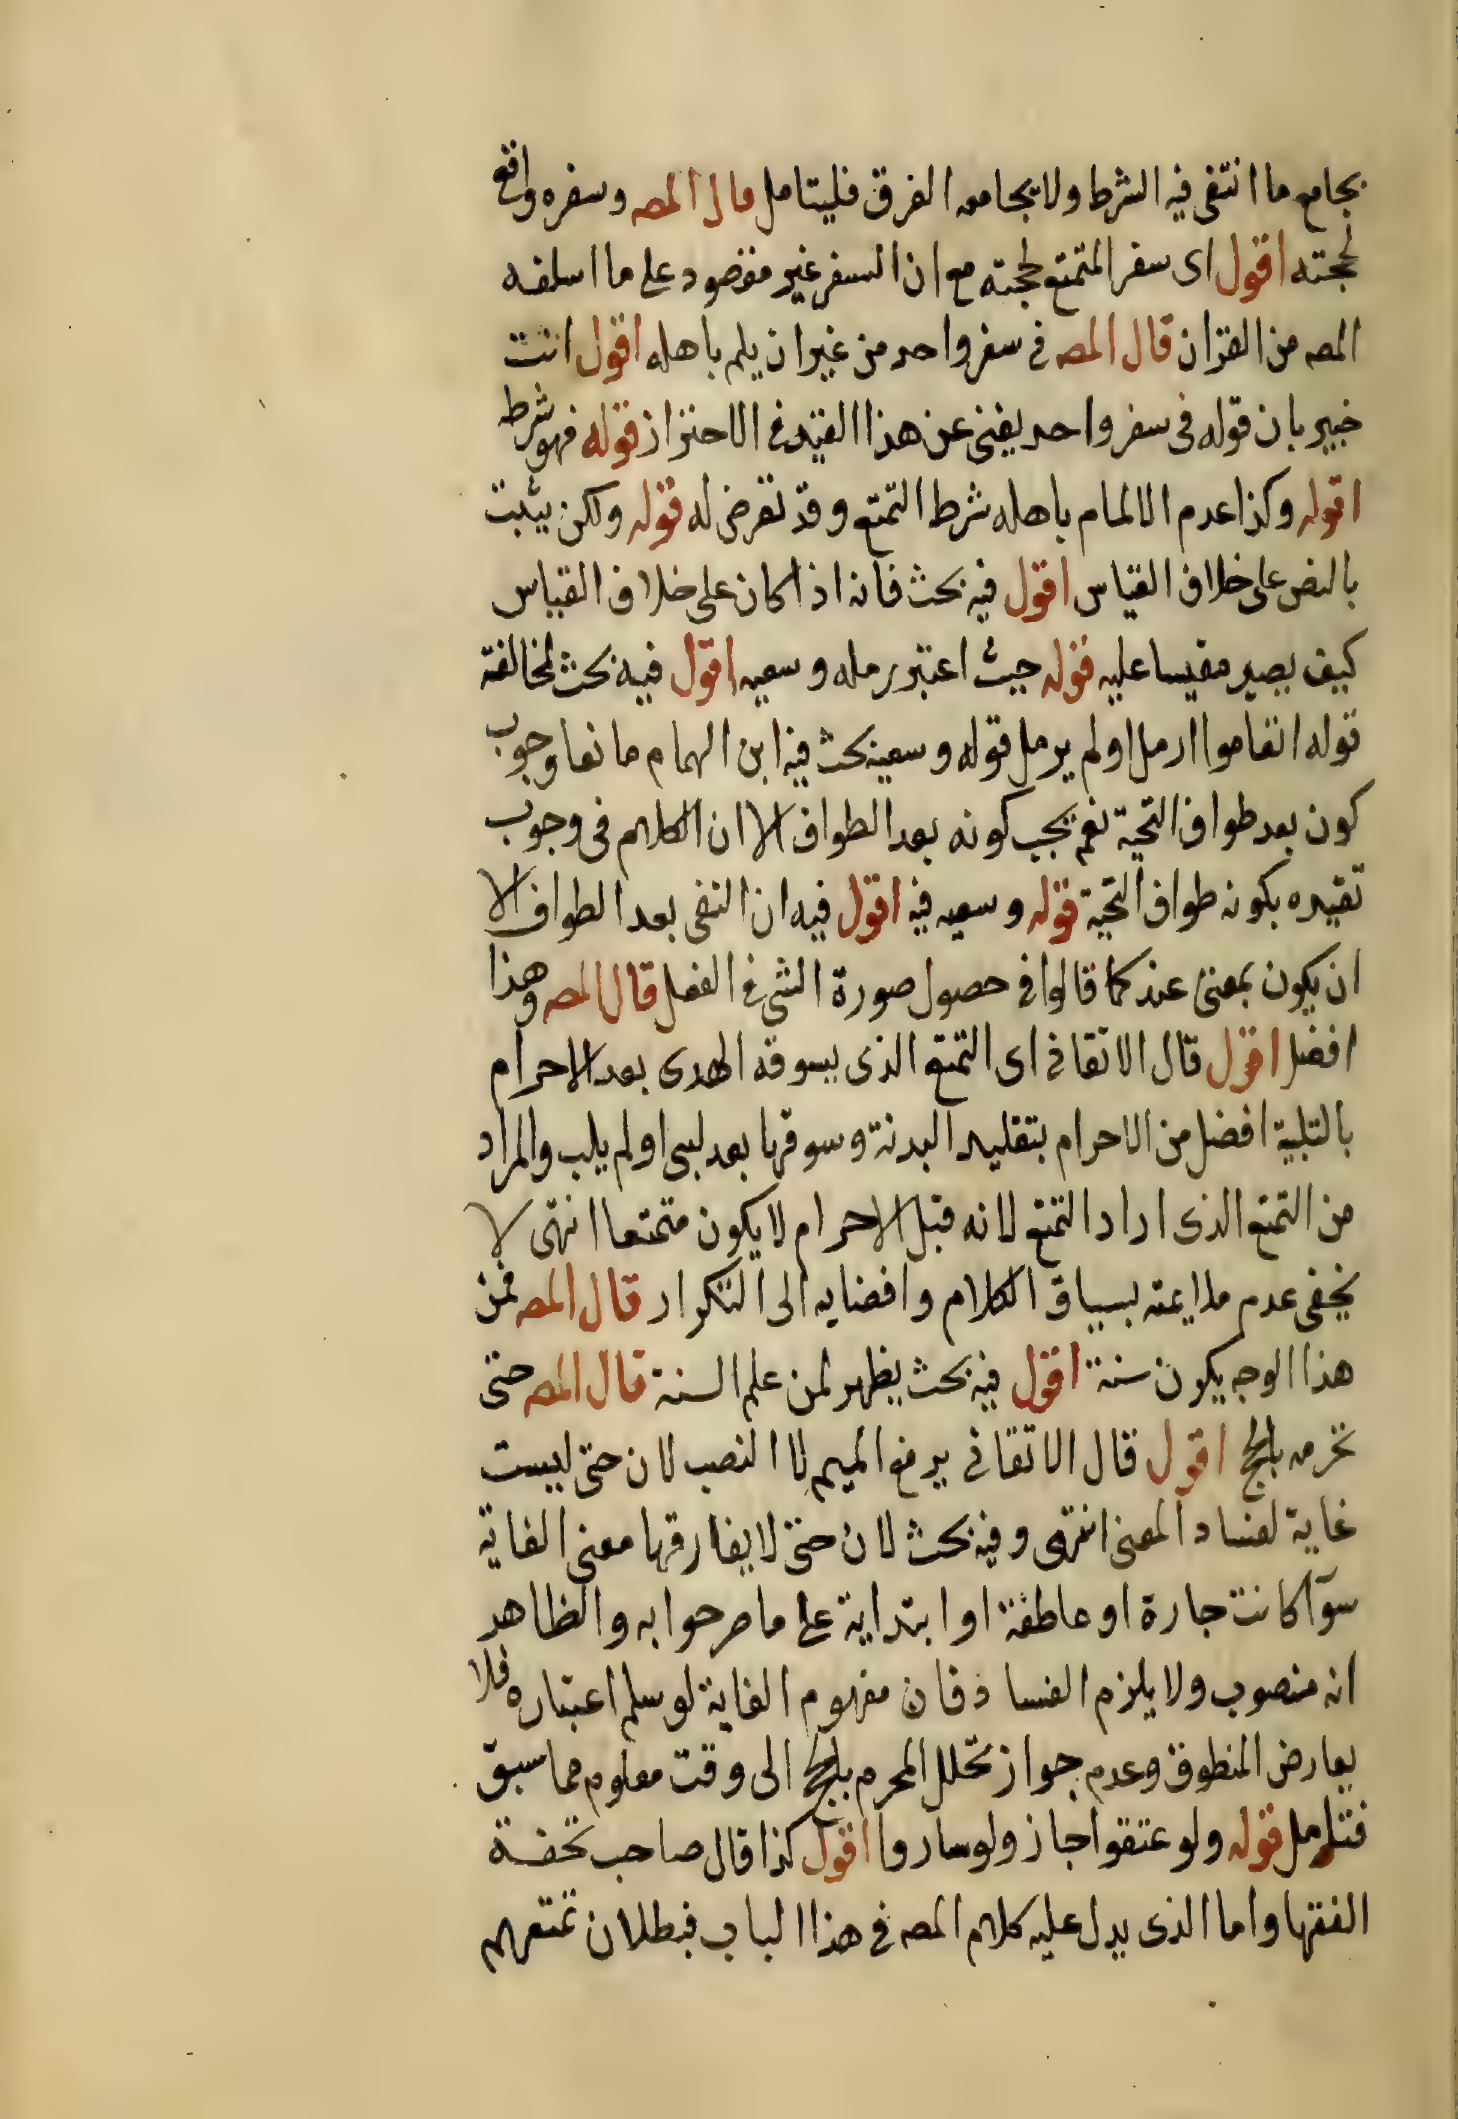 بجامع ما انتفى فيه الشرط ولا بجامعه الفرق فليتامل قال المصه وسفره واقع
لحجته اقول اى سفر المتمتع لحجته مع ان السفر غير مقصود على ما اسلفه
المصه من القران قال المصه فى سفر واحد من غير ان يلم باهله اقول انت
خبير بان قوله فى سفر واحد يغنى عن هذا القيد فى الاحتراز قوله فهو شرط
اقوله وكذا عدم الالمام باهله شرط التمتع وقد تعرض له قوله ولكن يثبت
بالنص على خلاف القياس اقول فيه بحث فانه اذا كان على خلاف القياس
كيف يصير مقيسا عليه قوله حيث اعتبر رمله وسعيه اقول فيه بحث لمخالفة
قوله ارمل او لم يرمل قوله وسعيه بحث فيه ابن الهمام مانعا وجوب
كون بعد طواف التحية نعم يجب كونه بعد الطواف الا ان الكلام فى وجوب
تقيده بكونه طواف التحية قوله وسعيه فيه اقول فيه ان النفى بعد الطواف الا
ان يكون بمعنى عند كما قالوا فى حصول صورة الشئ فى العقل قال المصه وهذا
افضل اقول قال الاتقانى اى التمتع الذى يسوقه الهدى بعد الاحرام
بالتلبية افضل من الاحرام بتقليد البدنة وسوقها بعد لبى او لم يلب والمراد
من التمتع الذى اراد التمتع لانه قبل الاحرام لا يكون متمتعا انتهى لا
يخفى عدم ملايمته بسياق الكلام وافضايه الى التكرار قال المصه فمن
هذا الوجه يكون سنة اقول فيه بحث يظهر لمن علم السنة قال المصه حتى
تحرمه بالحج اقول قال الاتقانى يرفع الميم لا النصب لان حتى ليست
غاية لفساد المعنى انتهى وفيه بحث لان حتى لا يفارقها معنى الغاية
سوآ كانت جارة او عاطفة او ابتداية على ما صرحوا به والظاهر
انه منصوب ولا يلزم الفساد فان مفهوم الغاية لو سلم اعتباره فلا
يعارض المنطوق وعدم جواز تحلل المحرم بالحج الى وقت معلوم مما سبق
فتامل قوله ولو عتقوا جاز ولو ساروا اقول كذا قال صاحب تحفة
الفقها واما الذى يدل عليه كلام المصه فى هذا الباب فبطلان تمتعهم